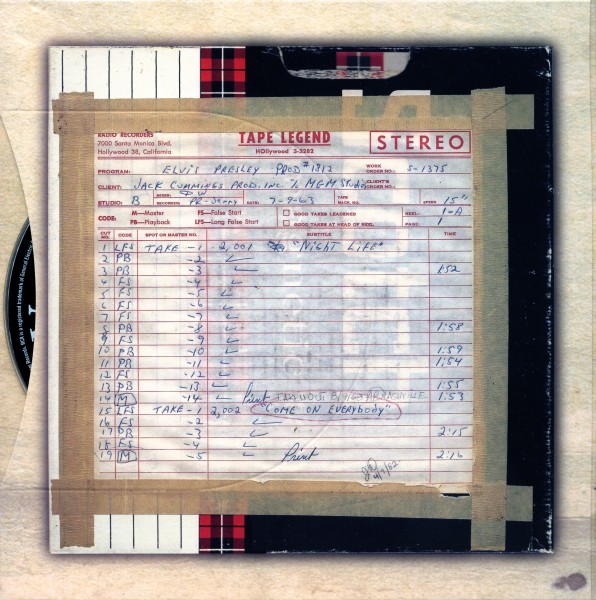 RADIO RECORDERS
7000 Santa Monica Blvd.
Hollywood 38, California
TAPE LEGEND
HOllywood 3-3282
STEREO
PROGRAM: ELVIS PRESLEY PROD #1812 WORK ORDER NO. 5-1375
CLIENT: JACK CUMMINGS PROD. INC. % M.G.M. STUDIO CLIENT'S ORDER NO.
STUDIO: B DATE: 7-9-63 TAPE MACH. NO. SPEED 15"
CODE: M—Master FS—False Start GOOD TAKES LEADERED REEL 1-A
PB—Playback LFS—Long False Start GOOD TAKES AT HEAD OF REEL PAGE 1
CUT NO. CODE SPOT OR MASTER NO. SUBTITLE TIME
1 LFS TAKE -1 - 2,001 "NIGHT LIFE"
2 PB -2
3 PB -3 1:52
4 FS -4
5 FS -5
6 FS -6
7 FS -7
8 PB -8 1:58
9 FS -9
10 PB -10 1:59
11 PB -11 1:54
12 FS -12
13 PB -13 1:55
14 M -14 Print NASHVILLE 1:53
15 LFS TAKE -1 2,002 "COME ON EVERYBODY"
16 FS -2
17 PB -3 " 2:15
18 FS -4
19 M -5 Print 2:16